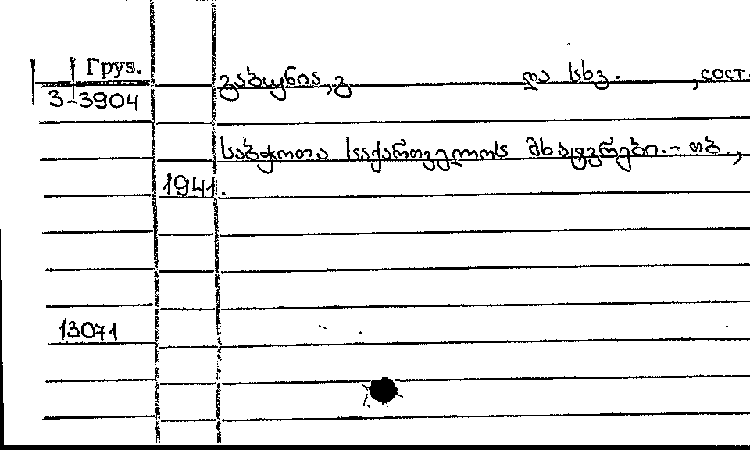 Груз.
3-3904
გაბუნია, გ და სხვ. , сост.
საბჭოთა საქართველოს მხატვრები. - თბ.,
1941.
13071